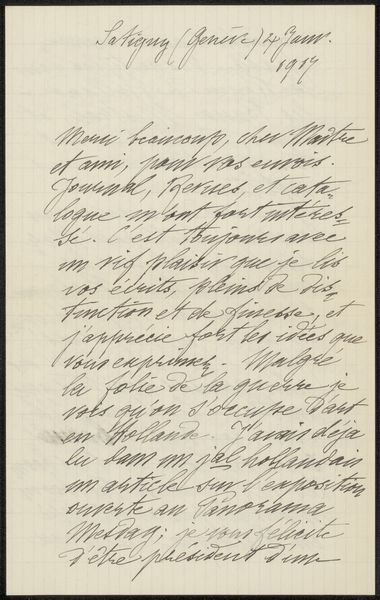 Satigny (Genève) 24 Janv.
1917
Merci beaucoup, cher Maître
et ami, pour vos envois.
Journal, Revues, et cata-
logue m'ont fort intéres-
sé. C'est toujours avec
un vif plaisir que je lis
vos écrits, pleins de dis-
tinction et de finesse, et
j'apprécie fort les idées que
vous exprimez. Malgré
la folie de la guerre je
vois qu'on s'occupe d'art
en Hollande. J'avais déjà
lu dans un jal hollandais
un article sur l'exposition
ouverte au Panorama
Mesdag; je vous félicite
d'être président d'une